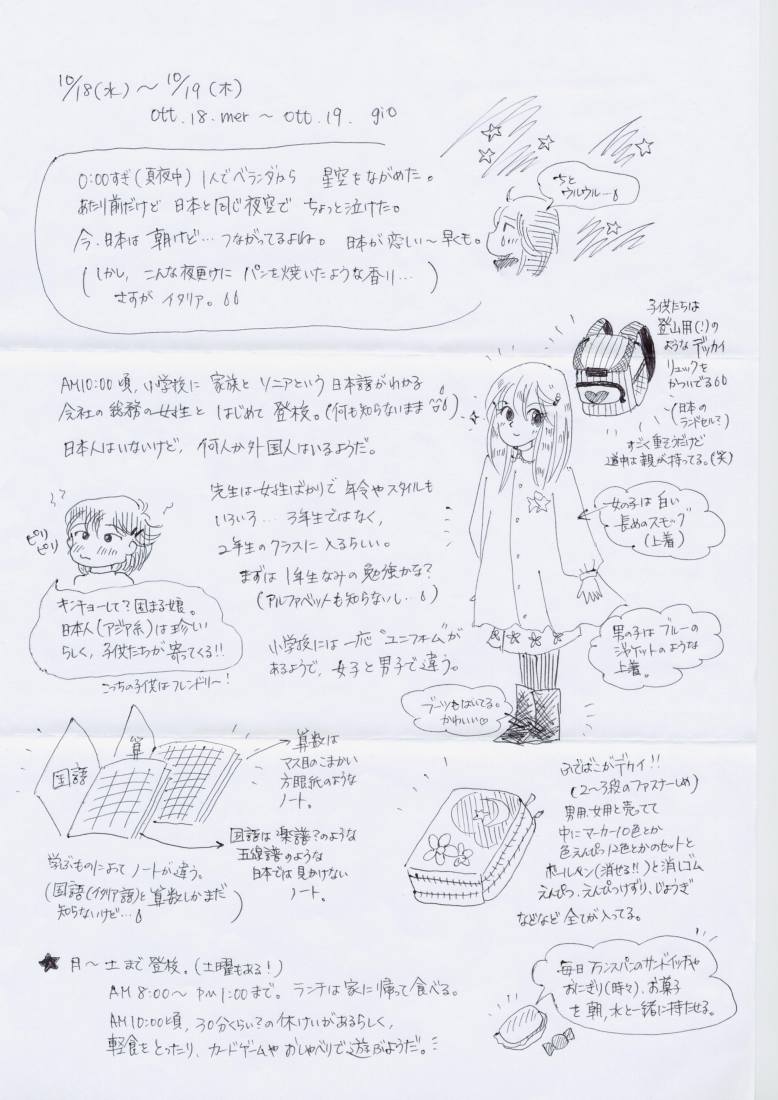 10/18(水)～10/19(木)
ott.18.mer ~ ott.19. gio
0:00すぎ(真夜中) 1人でベランダから 星空をながめた。
あたり前だけど 日本と同じ夜空で ちょっと泣けた。
今、日本は 朝けど…つながってるよね。 日本が恋しい～早くも。
(しかし、こんな夜更けに パンを焼いたような香り…
さすが イタリア。)
ちと
ウルウルー
AM10:00頃、小学校に 家族と ソニアという 日本語がわかる
会社の 総務の女性と はじめて 登校。(何も知らないまま)
日本人はいないけど、何人か外国人はいるようだ。
子供たちは
登山用(!)の
ような デッカイ
リュックを
かついでる
(日本の
ランドセル?)
すごく重そうだけど
道中は 親が持ってる。(笑)
先生は 女性ばかりで 年令やスタイルも
いろいろ… 3年生ではなく、
2年生のクラスに 入るらしい。
まずは 1年生なみの 勉強かな?
(アルファベットも知らないし…)
小学校には 一応 "ユニフォム"が
あるようで、女子と男子で違う。
ピリ
ピリ
キンチョーして? 困まる娘。
日本人(アジア系)は 珍しい
らしく、子供たちが 寄ってくる!!
こっちの子供はフレンドリ～!
女の子は 白い
長めのスモッグ
(上着)
男の子は ブルーの
ジャケットのような
上着。
ブーツもはいてる。
かわいい♡
国語
算
算数は
マス目のこまかい
方眼紙のような
ノート。
国語は 楽譜?のような
五線譜のような
日本では見かけない
ノート。
学ぶものによって ノートが違う。
(国語(イタリア語)と 算数しかまだ
知らないけど…)
ふでばこがデカイ!!
(2～3段のファスナーしめ)
男用、女用と売ってて
中に マーカー10色とか
色えんぴつ12色とかのセットと
ボールペン(消せる!!)と消しゴム
えんぴつ、えんぴつけずり、じょうぎ
などなど 全てが入ってる。
★ 月～土まで 登校。(土曜もある!)
AM 8:00～ PM 1:00まで。 ランチは 家に帰って 食べる。
AM10:00頃、30分くらい?の 休けいがあるらしく、
軽食を とったり、カードゲームや おしゃべりで 遊ぶようだ。
毎日 フランスパンのサンドイッチや
おにぎり(時々)、お菓子
を 朝、水と一緒に持たせる。